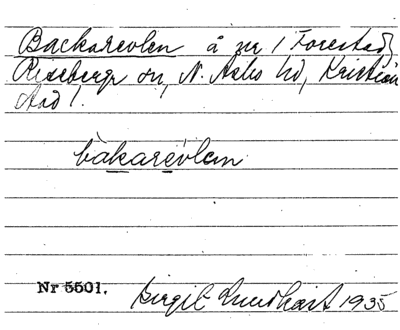 Backarevlen å nr 1 Forestad,
Riseberga sn, N. Åsbo hd, Kristian
stad l.
bàkarèvlen
Nr 5501.
Birgit Lundkvist 1935